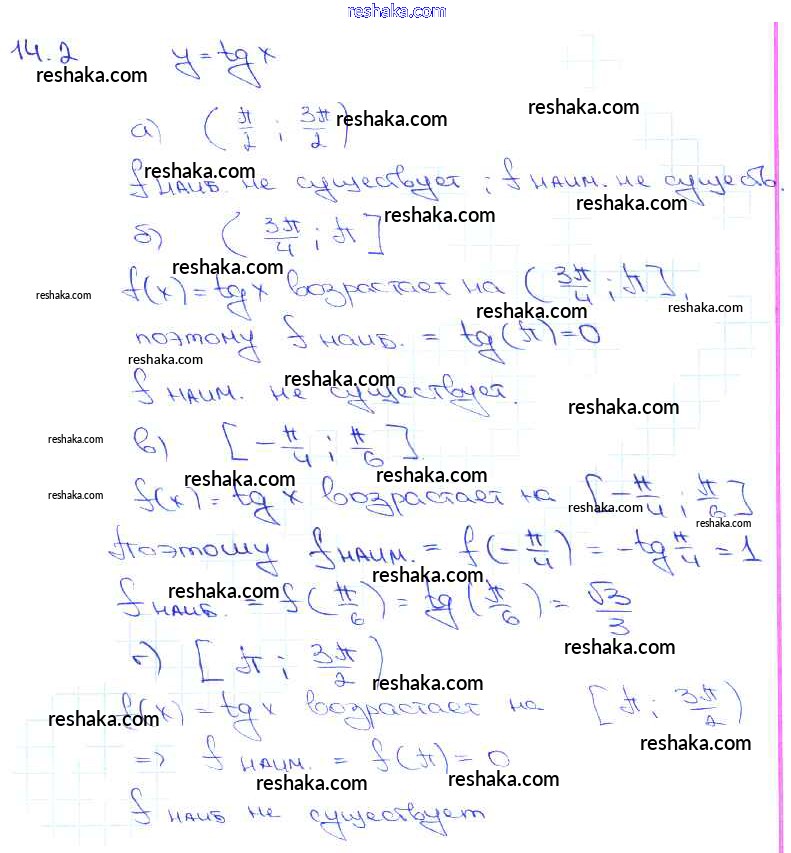 reshaka.com
14.2 y = tg x
reshaka.com
а) (π/2 ; 3π/2) reshaka.com reshaka.com
reshaka.com
f наиб. не существует ; f наим. не существ.
reshaka.com
б) (3π/4 ; π] reshaka.com
reshaka.com
reshaka.com f(x) = tg x возрастает на (3π/4 ; π],
reshaka.com
поэтому f наиб. = tg(π) = 0
reshaka.com
reshaka.com
f наим. не существует.
reshaka.com
reshaka.com в) [-π/4 ; π/6].
reshaka.com
reshaka.com f(x) = tg x возрастает на [-π/4 ; π/6]
reshaka.com
reshaka.com
Поэтому f наим. = f(-π/4) = -tg π/4 = 1
reshaka.com
reshaka.com
f наиб. = f(π/6) = tg(π/6) = √3/3
reshaka.com
г) [π ; 3π/2)
reshaka.com
f(x) = tg x возрастает на [π ; 3π/2)
reshaka.com
reshaka.com
=> f наим. = f(π) = 0
reshaka.com reshaka.com
f наиб не существует